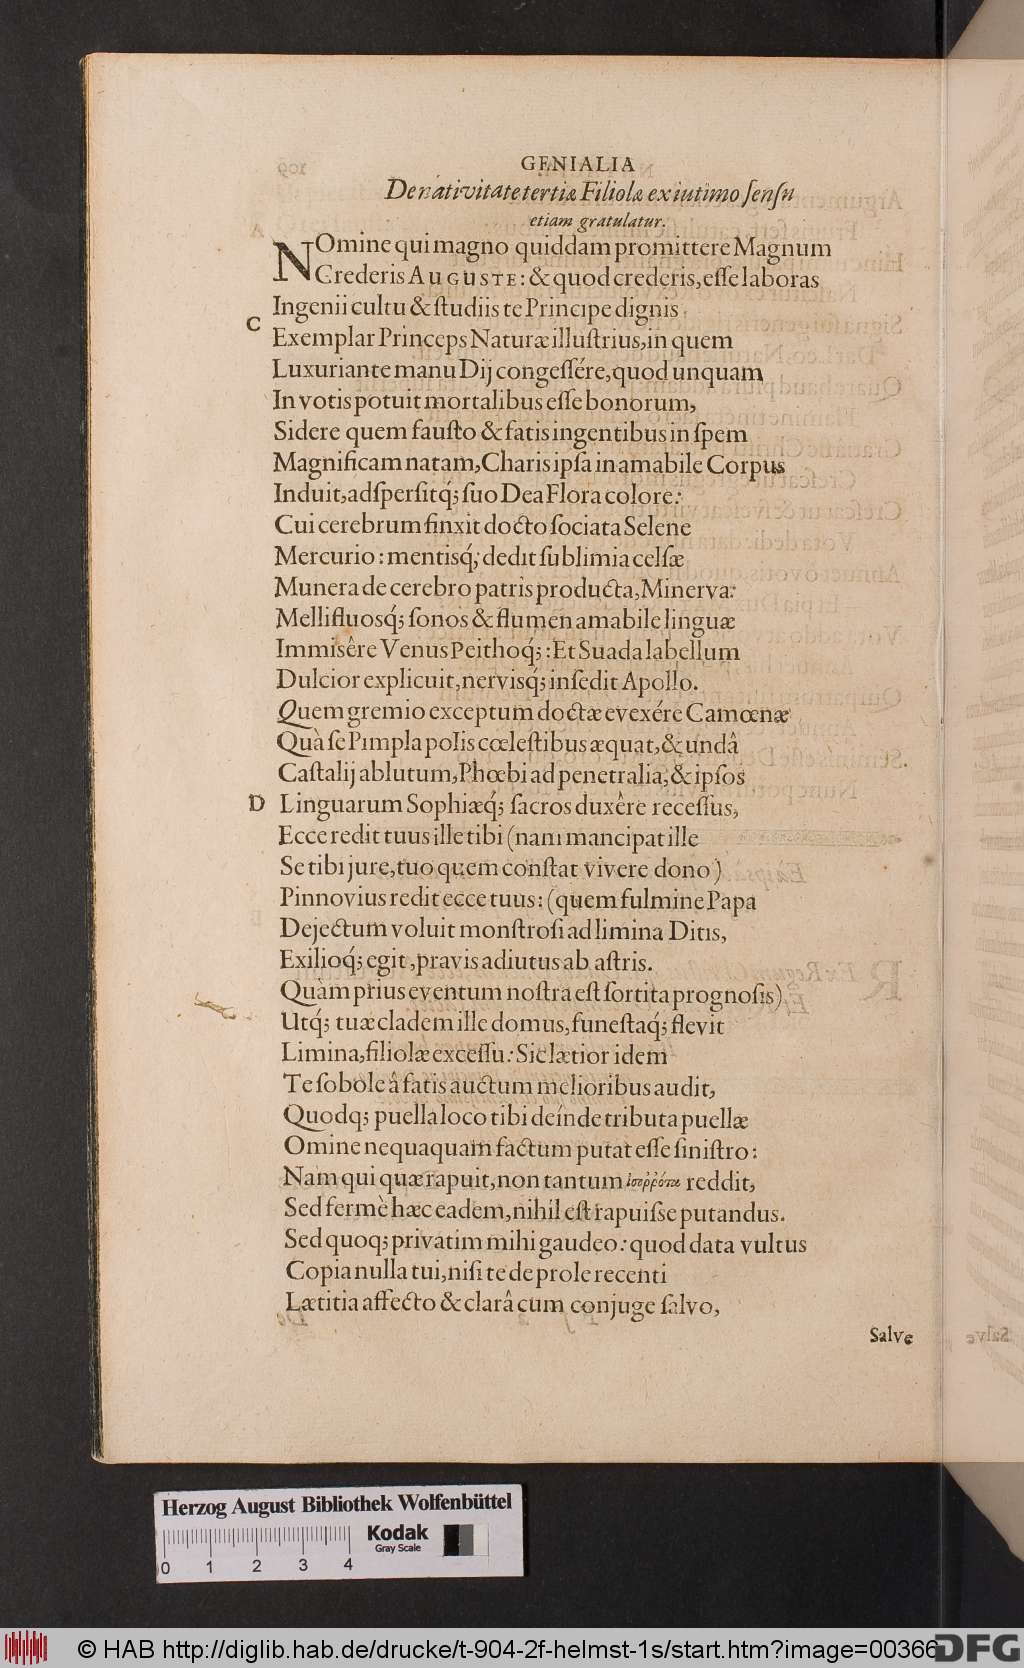 GENIALIA
De nativitate tertiæ Filiolæ ex intimo sensu
etiam gratulatur.
NOmine qui magno quiddam promittere Magnum
Crederis AUGUSTE: & quod crederis, esse laboras
Ingenii cultu & studiis te Principe dignis
C
Exemplar Princeps Naturæ illustrius, in quem
Luxuriante manu Dij congessére, quod unquam
In votis potuit mortalibus esse bonorum,
Sidere quem fausto & fatis ingentibus in spem
Magnificam natam, Charis ipsa in amabile Corpus
Induit, adspersitq́; suo Dea Flora colore:
Cui cerebrum finxit docto sociata Selene
Mercurio: mentisq́; dedit sublimia celsæ
Munera de cerebro patris producta, Minerva:
Mellifluosq́; sonos & flumen amabile linguæ
Immisêre Venus Peithoq́;: Et Suada labellum
Dulcior explicuit, nervisq́; insedit Apollo.
Quem gremio exceptum doctæ evexére Camœnæ
Quà se Pimpla polis cœlestibus æquat, & undâ
Castalij ablutum, Phœbi ad penetralia, & ipsos
D Linguarum Sophiæq́; sacros duxêre recessus,
Ecce redit tuus ille tibi (nam mancipat ille
Se tibi jure, tuo quem constat vivere dono)
Pinnovius redit ecce tuus: (quem fulmine Papa
Dejectum voluit monstrosi ad limina Ditis,
Exilioq́; egit, pravis adiutus ab astris.
Quàm prius eventum nostra est sortita prognosis)
Utq́; tuæ cladem ille domus, funestaq́; flevit
Limina, filiolæ excessu: Sic lætior idem
Te sobole â fatis auctum melioribus audit,
Quodq; puella loco tibi deínde tributa puellæ
Omine nequaquam factum putat esse sinistro:
Nam qui quæ rapuit, non tantum ἰσοῤῥόπα reddit,
Sed fermè hæc eadem, nihil est rapuisse putandus.
Sed quoq; privatim mihi gaudeo: quod data vultus
Copia nulla tui, nisi te de prole recenti
Lætitia affecto & clarâ cum conjuge salvo,
Salve
Herzog August Bibliothek Wolfenbüttel
Kodak
Gray Scale
0 1 2 3 4
© HAB http://diglib.hab.de/drucke/t-904-2f-helmst-1s/start.htm?image=00366
DFG